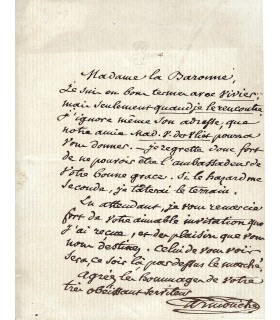 Madame la Baronne,
Je suis en bons termes avec Vivier,
mais seulement quand je le rencontre
J'ignore même son adresse, que
notre amie Mad. V. der Vliet pourra
vous donner. — je regrette donc fort
de ne pouvoir être l'ambassadeur de
votre bonne grace. Si le hazard me
seconde, je taterai le terrain.
En attendant, je vous remercie
fort de votre aimable invitation que
j'ai reçue, et des plaisirs que vous
nous destinez. Celui de vous voir
sera ce soir là par dessus le marché.
Agréez les hommages de votre
très obéissant serviteur